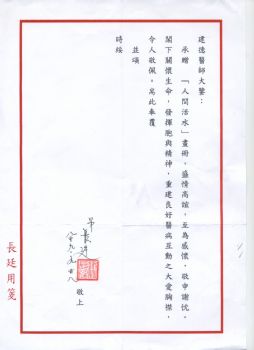 建德醫師大鑒：
承贈「人間活水」畫冊，盛情高誼，至為感懷，敬申謝忱。
閣下關懷生命，發揮胞與精神，重建良好醫病互動之大愛胸襟，
令人敬佩，耑此奉覆
並頌
時綏
弟
長廷
敬上
長廷用箋